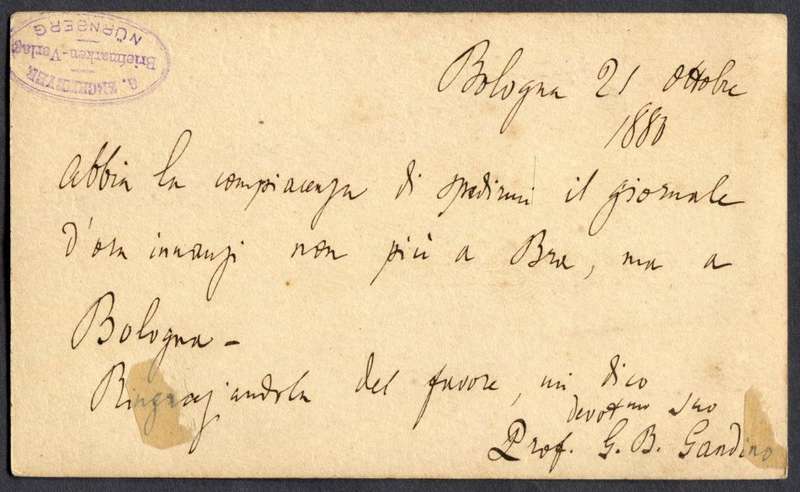 NÜRNBERG
Briefmarken-Verlag
G.
Bologna 21 Ottobre
1880
Abbia la compiacenza di spedirmi il giornale
d'ora innanzi non più a Bra, ma a
Bologna -
Ringraziandola del favore, mi dico
devotmo suo
Prof. G. B. Gandino